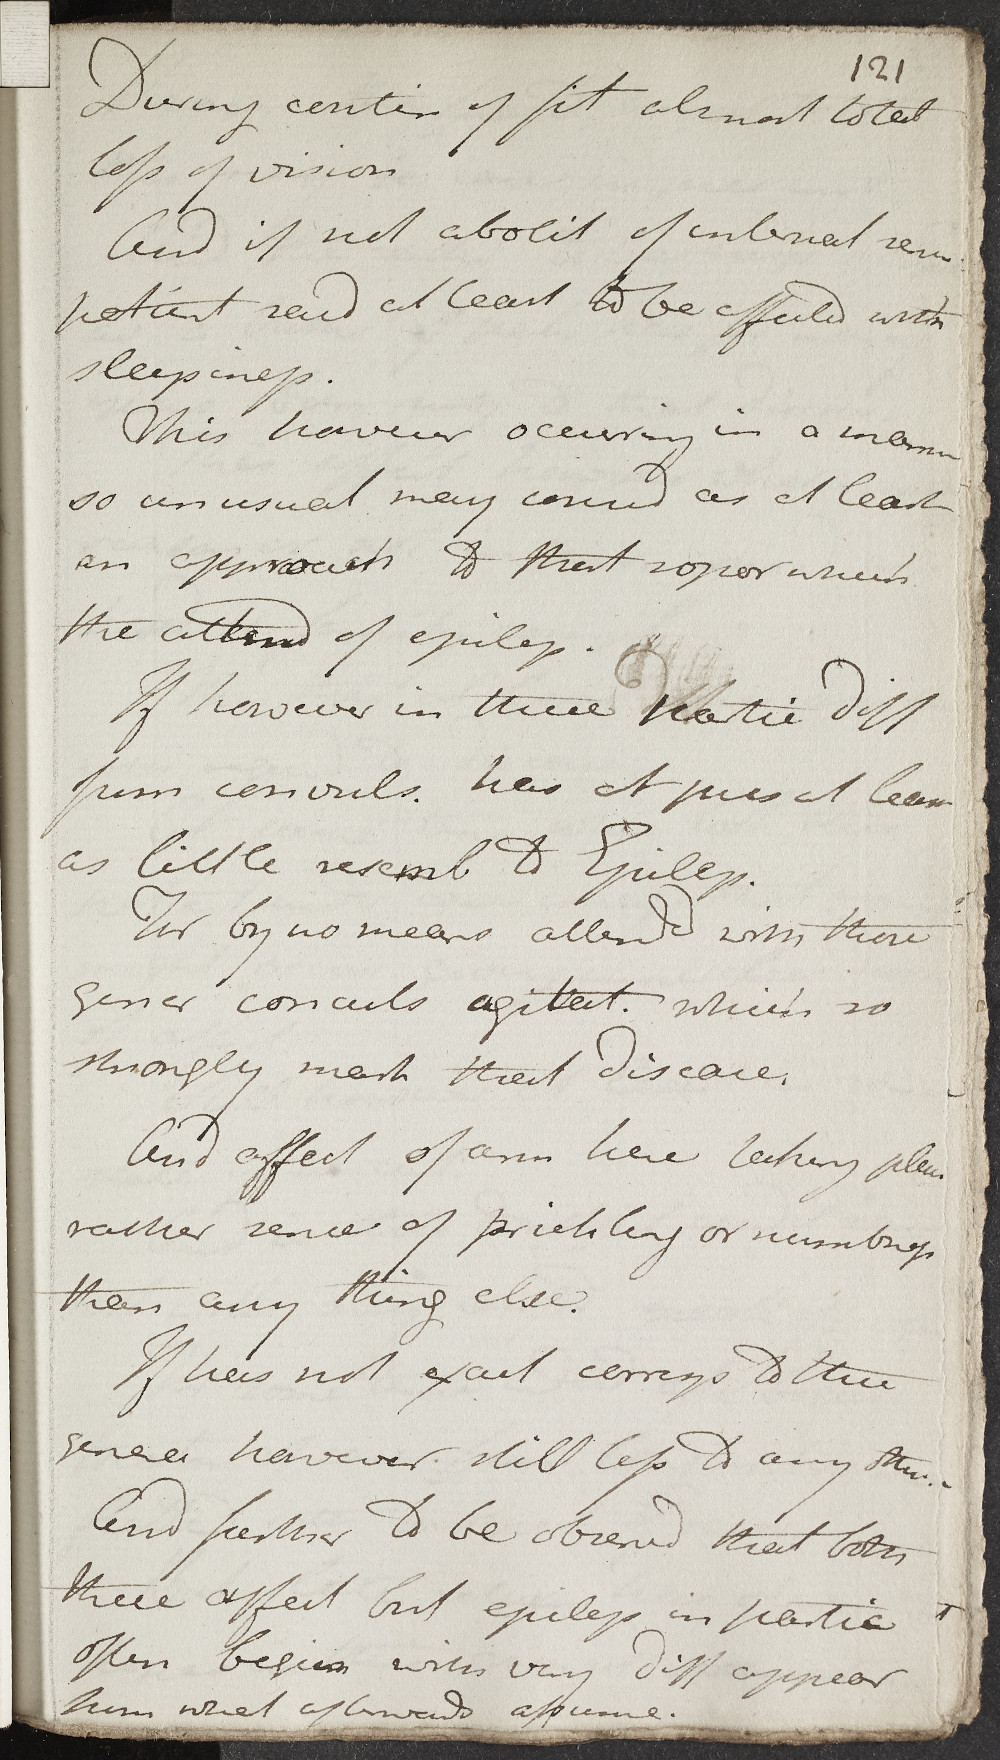 121
During contin of fit almost total
loss of vision
And if not abolit of internal sens
patient said at least to be affected with
sleepiness.
This however occurring in a mann
so unusual may consid as at least
an approach to that sopor which
the attend of epilep.
If however in these partic diff
from convuls. has at pres at least
as little resemb to Epilep.
For by no means attend with those
gener convuls agitat. which so
strongly mark that disease.
And affect of arm here taking place
rather sense of prickling or numbness
than any thing else.
If has not exact corresp to these
genera however still less to any other.
And farther to be observed that both
these affect but epilep in partic
often begin with very diff appear
from what afterwards assume.